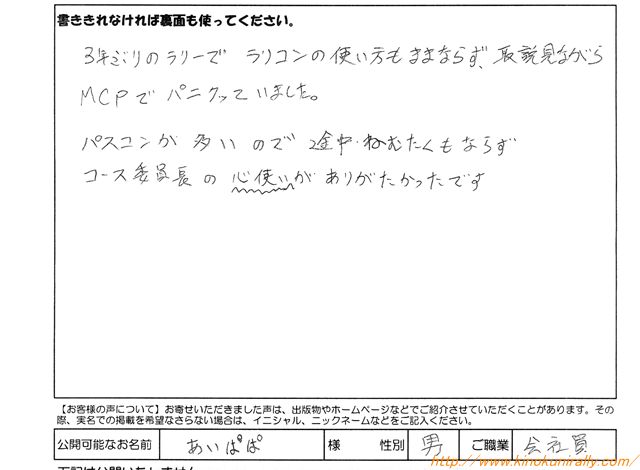 書ききれなければ裏面も使ってください。
3年ぶりのラリーで ラリコンの使い方もままならず、取説見ながら
MCPで パニクッて いました。
パスコンが 多い ので 途中・ねむたくもならず
コース委員長 の 心使いが ありがたかったです
【お客様の声について】お寄せいただきました声は、出版物やホームページなどでご紹介させていただくことがあります。その
際、実名での掲載を希望なさらない場合は、イニシャル、ニックネームなどをご記入ください。
公開可能なお名前 あいぱぱ 様 性別 男 ご職業 会社員
http://www.kinokunirally.com/